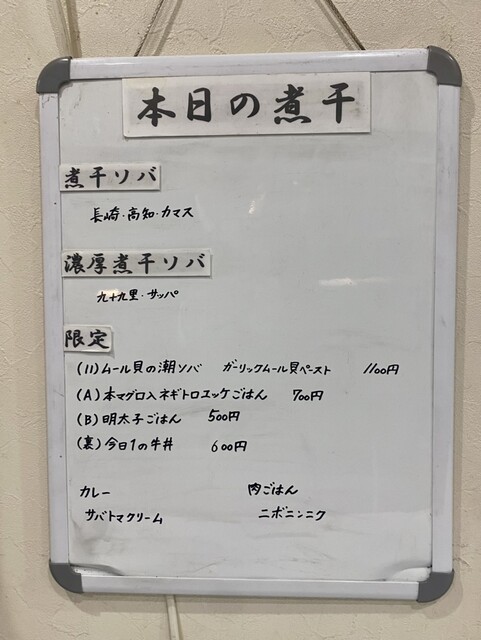 本日の煮干
煮干ソバ
長崎・高知・カマス
濃厚煮干ソバ
九十九里・サッパ
限定
(11)ムール貝の潮ソバ ガーリックムール貝ペースト 1100円
(A)本マグロ入ネギトロユッケごはん 700円
(B)明太子ごはん 500円
(裏)今日1の牛丼 600円
カレー 肉ごはん
サバトマクリーム ニボニンニク